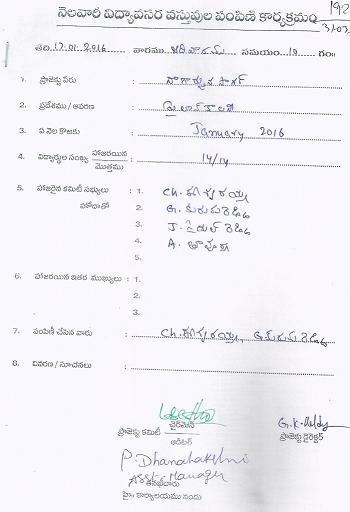 192
31/03
నెలవారీ విద్యావసర వస్తువుల పంపిణీ కార్యక్రమం
తేది 17-01-2016 వారము ఆదివారము సమయం 10 గం॥
1. ప్రాజెక్టు పేరు : నాగార్జున సాగర్
2. ప్రదేశము / ఆవరణ : హిల్ కాలనీ
3. ఏ నెల కొఱకు : January 2016
4. విద్యార్థుల సంఖ్య హాజరయిన / మొత్తము : 14/14
5. హాజరైన కమిటీ సభ్యులు : 1. Ch.
హోదాతో 2. G.
3. J.
4. A.
5.
6. హాజరయిన ఇతర ముఖ్యులు : 1.
2.
3.
7. పంపిణీ చేసిన వారు : Ch.
8. వివరణ / సూచనలు :
ప్రాజెక్టు కమిటీ చైర్‌మెన్ / ఆడిటర్
G.K. Reddy
ప్రాజెక్టు డైరెక్టర్
P. Dhanalakshmi
Asst. Manager
తనిఖీదారు
హై॥ కార్యాలయము నందు